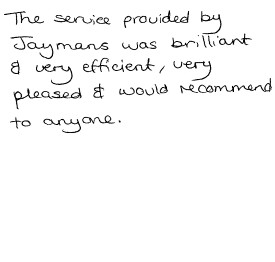 The service provided by
Jaymans was brilliant
& very efficient, very
pleased & would recommend
to anyone.